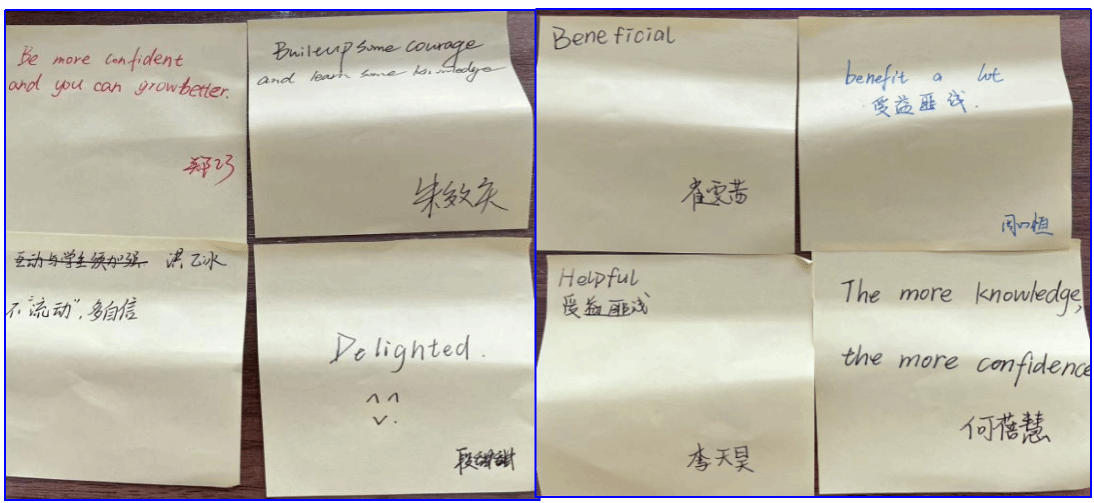 Be more confident
and you can grow better.
Build up some courage
and learn some knowledge
朱效庆
Beneficial
崔雯茜
benefit a lot
受益匪浅.
周心恒
互动与学生须加强 洪乙冰
不“流动”,多自信
Delighted.
^ ^
v.
段甜甜
Helpful
受益匪浅
李天昊
The more knowledge,
the more confidence
何蓓慧